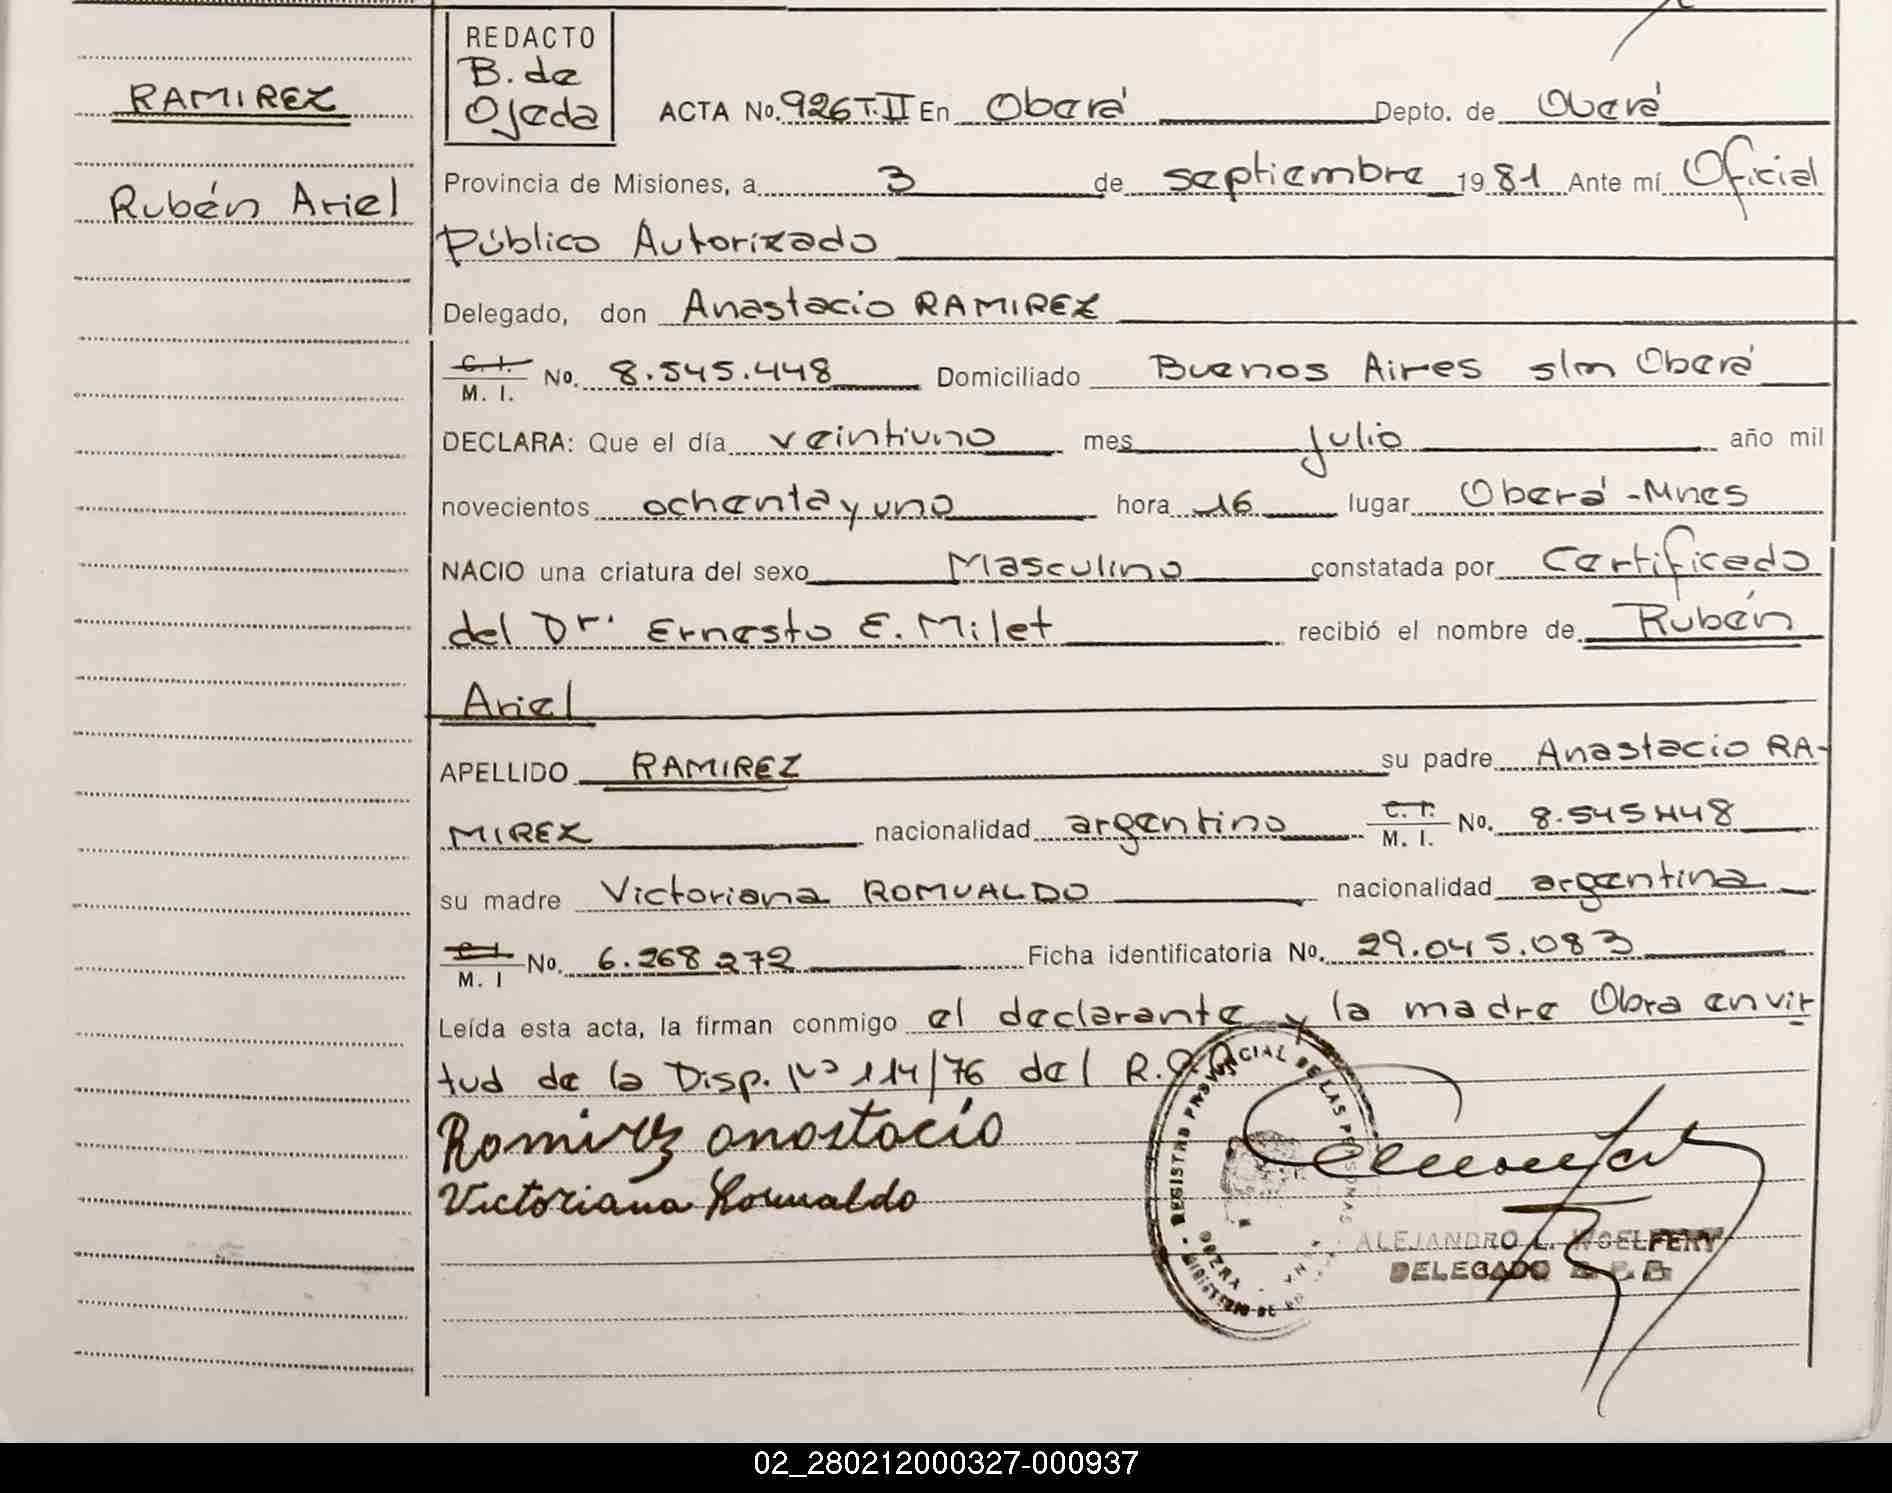 RAMIREZ
Rubén Ariel
REDACTO
B. de
Ojeda
ACTA No. 926 T. II En Oberá Depto. de Oberá
Provincia de Misiones, a 3 de septiembre 1981 Ante mí Oficial
Público Autorizado
Delegado, don Anastacio RAMIREZ
C. I. / M. I. No. 8.545.448 Domiciliado Buenos Aires s/m Oberá
DECLARA: Que el día veintiuno mes julio año mil
novecientos ochenta y uno hora 16 lugar Oberá - Mnes
NACIO una criatura del sexo Masculino constatada por Certificado
del Dr. Ernesto E. Milet recibió el nombre de Rubén
Ariel
APELLIDO RAMIREZ su padre Anastacio RA-
MIREZ nacionalidad argentino C. I. / M. I. No. 8.545.448
su madre Victoriana ROMUALDO nacionalidad argentina
C. I. / M. I No. 6.268.272 Ficha identificatoria No. 29.045.083
Leída esta acta, la firman conmigo el declarante y la madre Obra en vir
tud de la Disp. Nº 114/76 del R.
Ramirez anastacio
Victoriana Romualdo
REGISTRO PROVINCIAL DE LAS PERSONAS
ALEJANDRO L. WOELFERT
DELEGADO
02_280212000327-000937